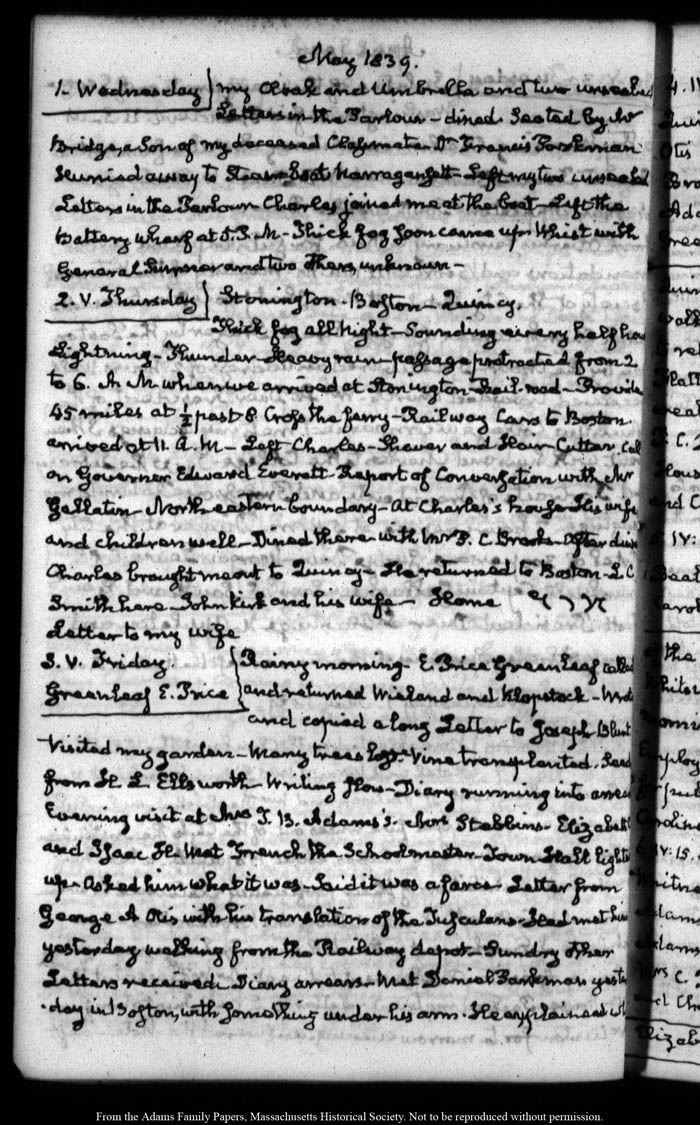 May 1839.
1. Wednesday my Cloak and Umbrella and two unsealed
Letters in the Parlour - dined. Seated by Mr
Bridge, a Son of my deceased Classmate. Dr Francis Parkman
Hurried away to Steam-boat Narragansett - Left my two unsealed
Letters in the Parlour. Charles joined me at the boat - Left the
Battery wharf at 5. P. M - Thick fog soon came up. Whist with
General Sumner and two others, unknown -
2. V. Thursday Stonington - Boston - Quincy.
Thick fog all night - Sounding every half hou
Lightning - Thunder - Heavy rain - passage protracted from 2
to 6. A. M when we arrived at Stonington - Rail-road - Provide
45 miles at ½ past 8 Cross the ferry - Railway Cars to Boston.
arrived at 11. A. M - Left Charles - Shaver and Hair-Cutter. Call
on Governor Edward Everett - Report of Conversation with Mr
Gallatin - North eastern boundary - At Charles's house His wife
and children well - Dined there with Mr P. C. Brooks - After din
Charles brought me out to Quincy - He returned to Boston - L. C
Smith here - John Kirk and his wife - Home
Letter to my wife
3. V. Friday. Rainy morning - E. Price Greenleaf called
Greenleaf E. Price and returned Wieland and Klopstock - Wrote
and copied a long Letter to Joseph Blunt
Visited my garden - Many trees lost. Vine transplanted.
from H. L. Ellsworth - Writing flow - Diary running into arrear
Evening visit at Mrs T. B. Adams's. Mrs Stebbins - Elizabeth
and Isaac H. Met French the Schoolmaster - Town Hall light
up - Asked him what it was - Said it was a farce - Letter from
George A Otis with his translation of the Tusculans - Had met him
yesterday walking from the Railway depot - Sundry other
Letters received. Diary arrears - Met Daniel Parkman yest
-day in Boston, with something under his arm - He explained
From the Adams Family Papers, Massachusetts Historical Society. Not to be reproduced without permission.